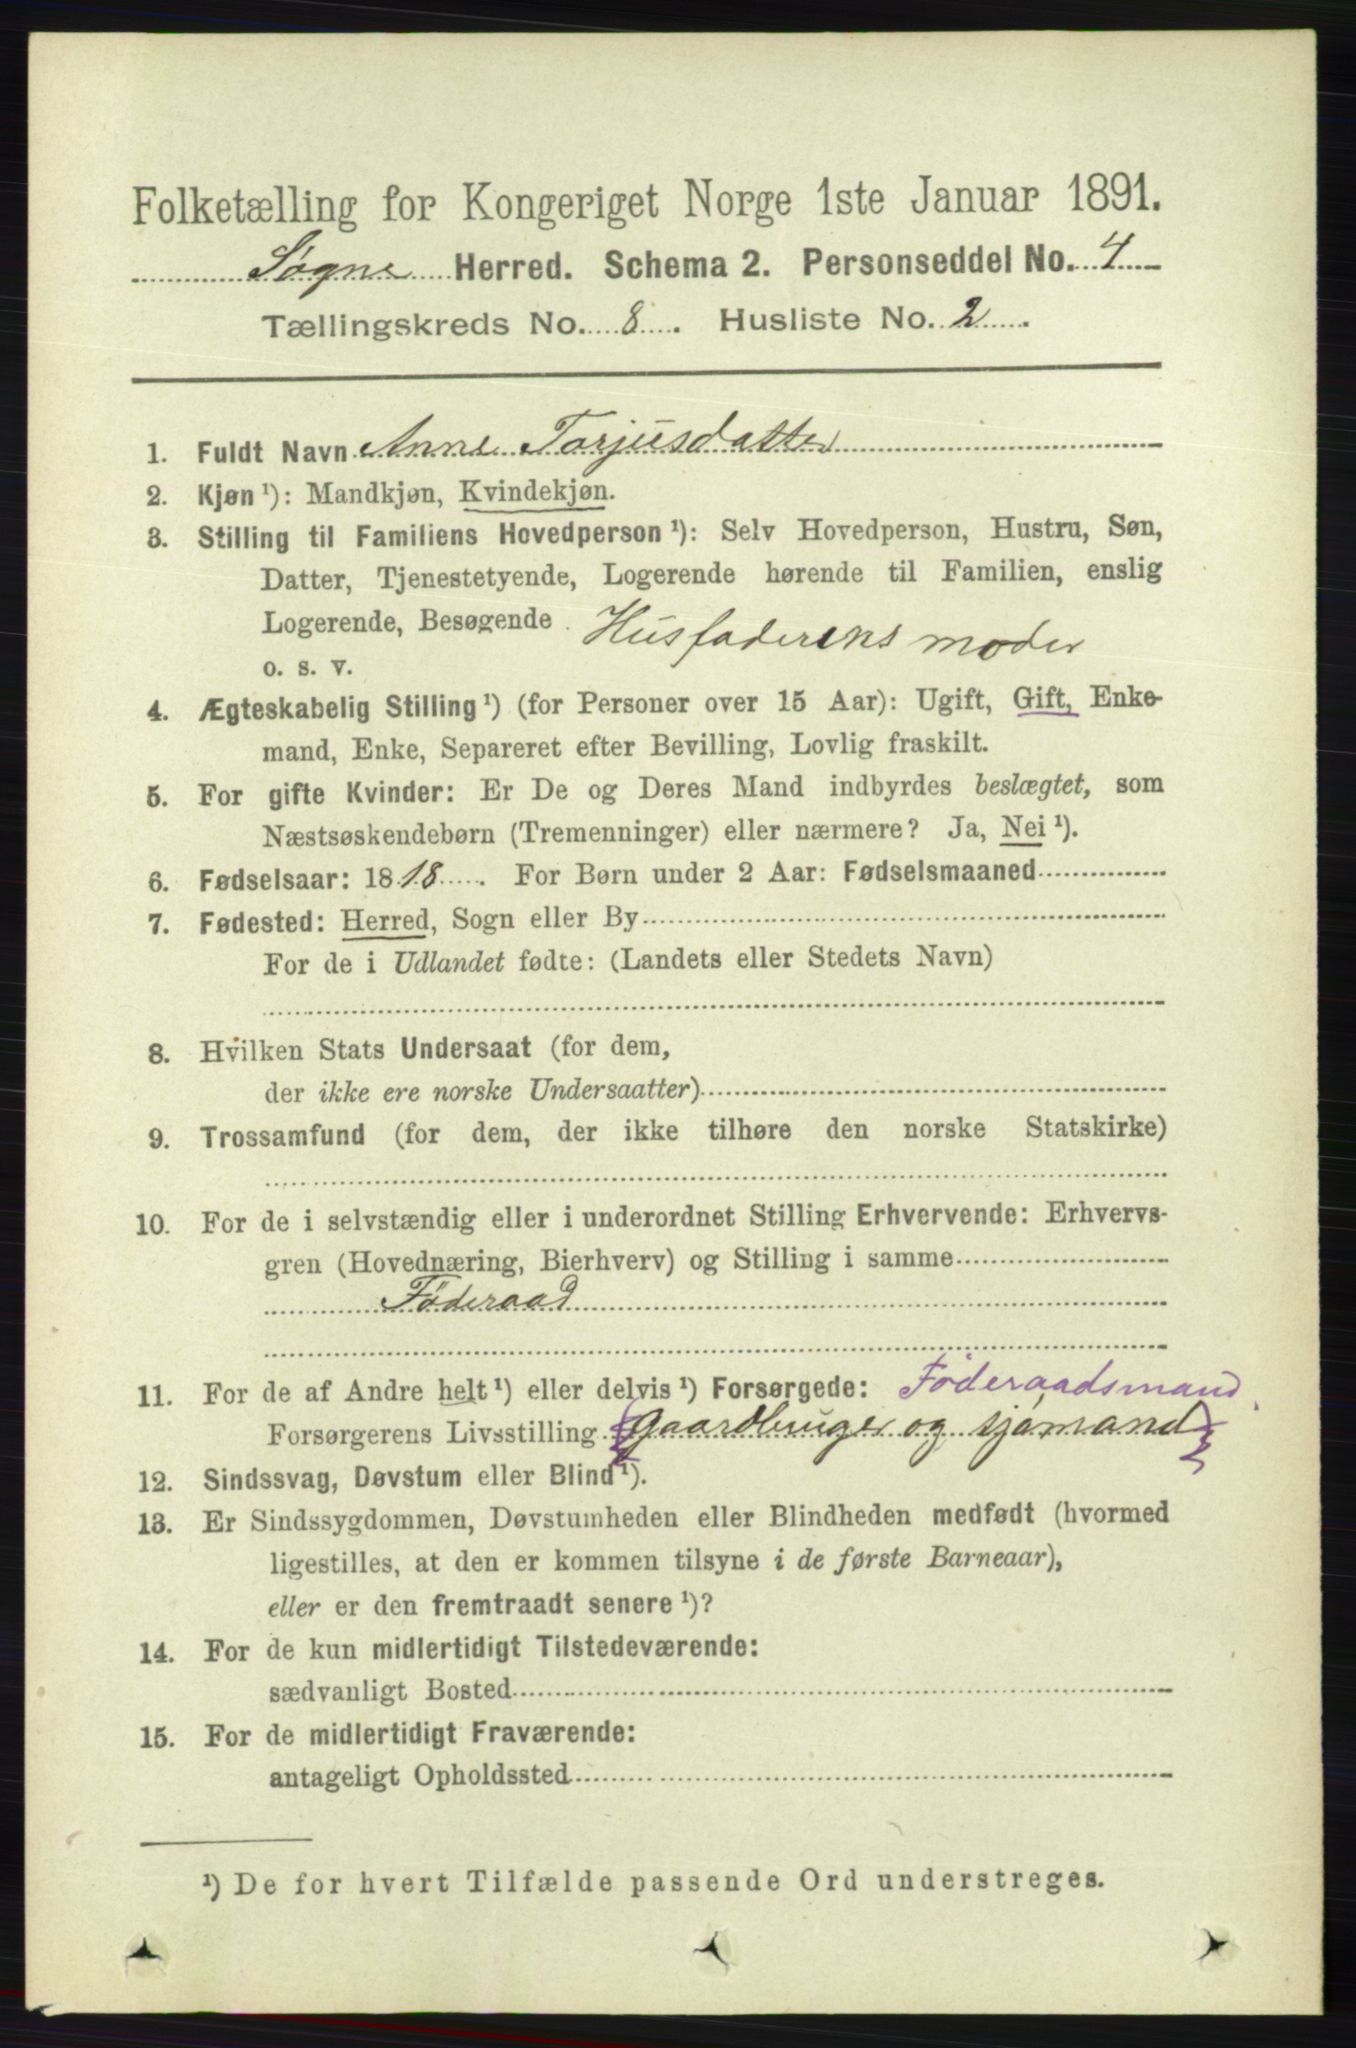 Folketælling for Kongeriget Norge 1ste Januar 1891.
Søgne Herred. Schema 2. Personseddel No. 4
Tællingskreds No. 8. Husliste No. 2
1. Fuldt Navn Anne Torjusdatter
2. Kjøn ¹): Mandkjøn, Kvindekjøn.
3. Stilling til Familiens Hovedperson ¹): Selv Hovedperson, Hustru, Søn,
Datter, Tjenestetyende, Logerende hørende til Familien, enslig
Logerende, Besøgende Husfaderens moder
o. s. v.
4. Ægteskabelig Stilling ¹) (for Personer over 15 Aar): Ugift, Gift, Enke-
mand, Enke, Separeret efter Bevilling, Lovlig fraskilt.
5. For gifte Kvinder: Er De og Deres Mand indbyrdes beslægtet, som
Næstsøskendebørn (Tremenninger) eller nærmere? Ja, Nei ¹).
6. Fødselsaar: 1818. For Børn under 2 Aar: Fødselsmaaned
7. Fødested: Herred, Sogn eller By
For de i Udlandet fødte: (Landets eller Stedets Navn)
8. Hvilken Stats Undersaat (for dem,
der ikke ere norske Undersaatter)
9. Trossamfund (for dem, der ikke tilhøre den norske Statskirke)
10. For de i selvstændig eller i underordnet Stilling Erhvervende: Erhvervs-
gren (Hovednæring, Bierhverv) og Stilling i samme
Föderaad
11. For de af Andre helt ¹) eller delvis ¹) Forsørgede: Föderaadsmand.
Forsørgerens Livsstilling {gaardbruger og sjømand}
12. Sindssvag, Døvstum eller Blind ¹).
13. Er Sindssygdommen, Døvstumheden eller Blindheden medfødt (hvormed
ligestilles, at den er kommen tilsyne i de første Barneaar),
eller er den fremtraadt senere ¹)?
14. For de kun midlertidigt Tilstedeværende:
sædvanligt Bosted
15. For de midlertidigt Fraværende:
antageligt Opholdssted
¹) De for hvert Tilfælde passende Ord understreges.